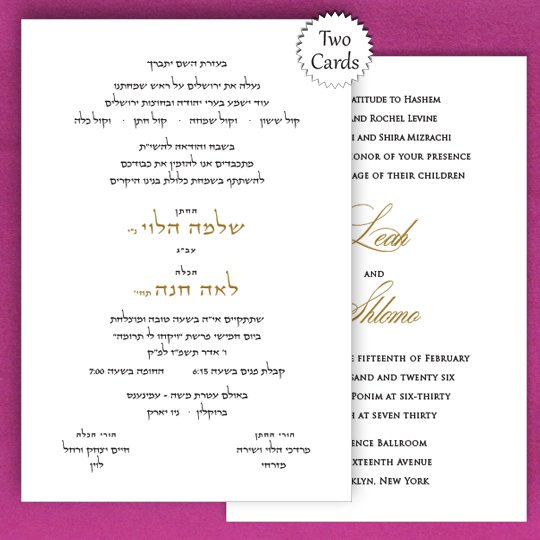 Two
Cards
בעזרת השם יתברך
נעלה את ירושלים על ראש שמחתנו
עוד ישמע בערי יהודה ובחוצות ירושלים
קול ששון · וקול שמחה · קול חתן · וקול כלה
בשבח והודאה להשי"ת
מתכבדים אנו להזמין את כבודכם
להשתתף בשמחת כלולת בנינו היקרים
החתן
שלמה הלוי ני"ו
עב"ג
הכלה
לאה חנה תחי'
שתתקיים אי"ה בשעה טובה ומוצלחת
ביום חמישי פרשת "ויקחו לי תרומה"
ו' אדר תשפ"ז לפ"ק
קבלת פנים בשעה 6:15 החופה בשעה 7:00
באולם עטרת משה - עמינענס
ברוקלין · ניו יארק
הורי החתן
מרדכי הלוי ושירה
מזרחי
הורי הכלה
חיים יצחק ורחל
לוין
atitude to Hashem
and Rochel Levine
i and Shira Mizrachi
onor of your presence
age of their children
Leah
and
Shlomo
e fifteenth of February
sand and twenty six
Ponim at six-thirty
h at seven thirty
ence Ballroom
ixteenth Avenue
klyn, New York